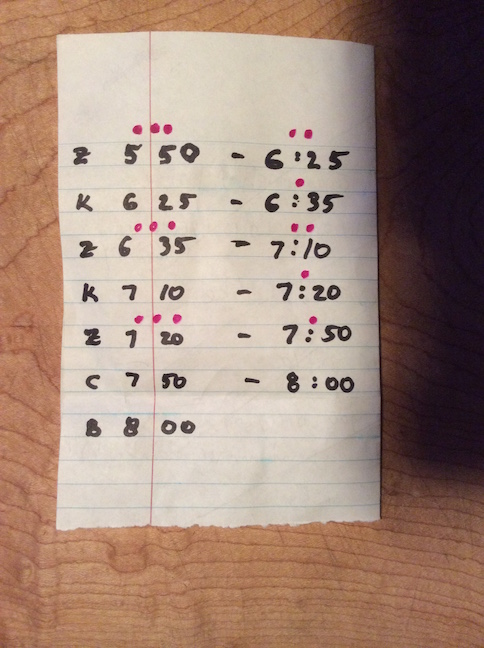 Z 5 50 - 6:25
K 6 25 - 6:35
Z 6 35 - 7:10
K 7 10 - 7:20
Z 7 20 - 7:50
C 7 50 - 8:00
B 8 00